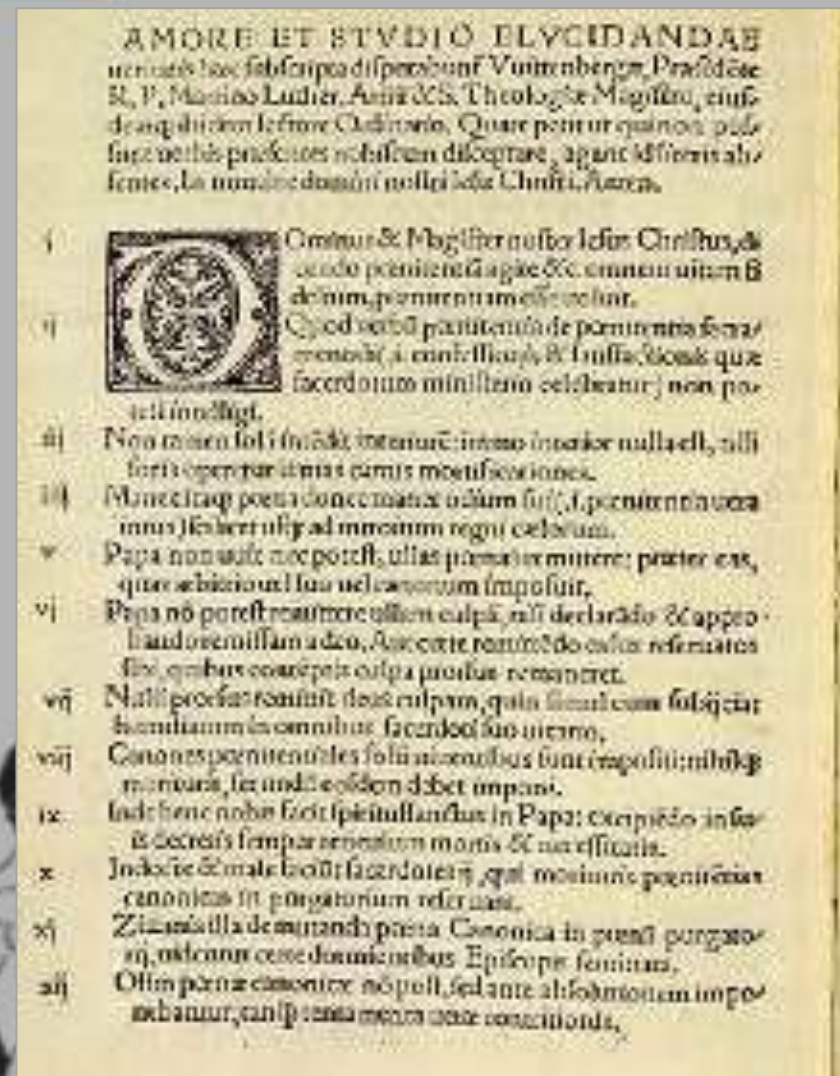 AMORE ET STVDIO ELVCIDANDAE
ueritatis hæc subscripta disputabunt Vuittenbergæ, Præsidẽte
R. P. Martino Luther, Artiũ & S. Theologiæ Magistro, eius-
demq; ibidem lectore Ordinario. Quare petit ut qui non pos-
sunt uerbis præsentes nobiscum disceptare, agant id literis ab-
sentes. In nomine domini nostri Iesu Christi, Amen.
i Ominus & Magister noster Iesus Christus, di-
cendo pœnitentiã agite &c. omnem uitam fi
delium, pœnitentiam esse uoluit.
ij Quod uerbũ pœnitentia de pœnitentia sacra-
mentali (.i. confessionis & satisfactionis quæ
sacerdotum ministerio celebratur) non po-
test intelligi.
iij Non tamen solã intẽdit interiorẽ: immo interior nulla est, nisi
foris operetur uarias carnis mortificationes.
iiij Manet itaq; pœna donec manet odium sui (.i. pœnitentia uera
intus) scilicet usq; ad introitum regni cælorum.
v Papa non uult nec potest, ullas pœnas remittere: præter eas,
quas arbitrio uel suo uel canonum imposuit.
vj Papa nõ potest remittere ullam culpã, nisi declarãdo & appro-
bando remissam a deo. Aut certe remittẽdo casus reseruatos
sibi, quibus contẽptis culpa prorsus remaneret.
vij Nulli prorsus remittit deus culpam, quin simul eum subijciat
humiliatum in omnibus sacerdoti suo uicario.
viij Canones pœnitentiales solũ uiuentibus sunt impositi: nihilq;
morituris, secundũ eosdem debet imponi.
ix Inde bene nobis facit spiritussanctus in Papa: excipiẽdo in su-
is decretis semper articulum mortis & necessitatis.
x Indocte & male faciũt sacerdotes ij, qui morituris pœnitẽtias
canonicas in purgatorium reseruant.
xj Zizania illa de mutanda pœna Canonica in pœnã purgato-
rij, uidentur certe dormientibus Episcopis seminata.
xij Olim pœnæ canonicæ nõ post, sed ante absolutionem impo-
nebantur, tanq; tentamenta ueræ contritionis.